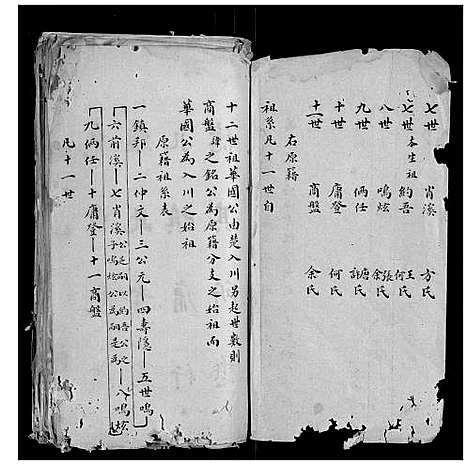 七世 肖溪 方氏
七世 本生祖 約吾 王氏 何氏
八世 鳴炫 張氏 余氏
九世 俩任 唐氏 許氏
十世 庸登 何氏
十一世 商盤 余氏
右原籍
祖系凡十一世自
十二世祖華國公由楚入川另起世數則
商盤之銘公為原籍分支之始祖而
華國公為入川之始祖
原籍祖系表
一鎮邦—二仲文—三公元—四壽隱—五世鳴
六前溪—七肖溪 公乏嗣以約吾公之子鳴炫公為嗣是為 八鳴炫
九俩任—十庸登—十一商盤
凡十一世